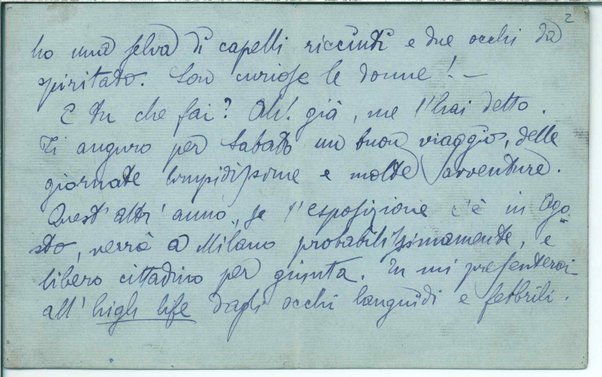 2
ho una selva di capelli ricciuti e due occhi da
spiritato. Son curiose le donne! –
E tu che fai? Ah! già, me l'hai detto.
Ti auguro per Sabato un buon viaggio, delle
giornate limpidissime e molte avventure.
Quest'altr'anno, se l'esposizione c'è in Ago-
sto, verrò a Milano probabilissimamente, e
libero cittadino per giunta. Tu mi presenterai
all'high life dagli occhi languidi e febbrili.